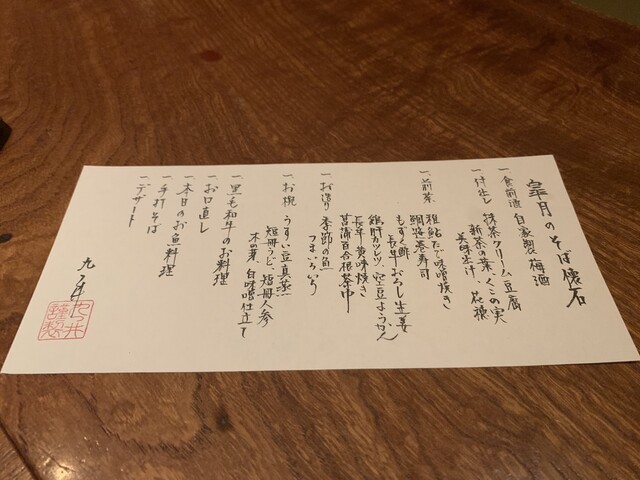 皐月のそば懐石
一、食前酒 自家製 梅酒
一、付出し 抹茶クリーム豆腐
新茶の葉、くこの実
美味出汁、花穂
一、前菜 稚鮎たで味噌焼き
鯛笹巻寿司
もずく酢
長芋おろし生姜
鶏肝カツレツ、空豆ようかん
長芋黄味焼き
菖蒲百合根茶巾
一、お造り 季節の魚
つまいろいろ
一、お椀 うすい豆真薯
短冊うど、短冊人参
木の芽、白味噌仕立て
一、黒毛和牛のお料理
一、お口直し
一、本日のお魚料理
一、手打そば
一、デザート